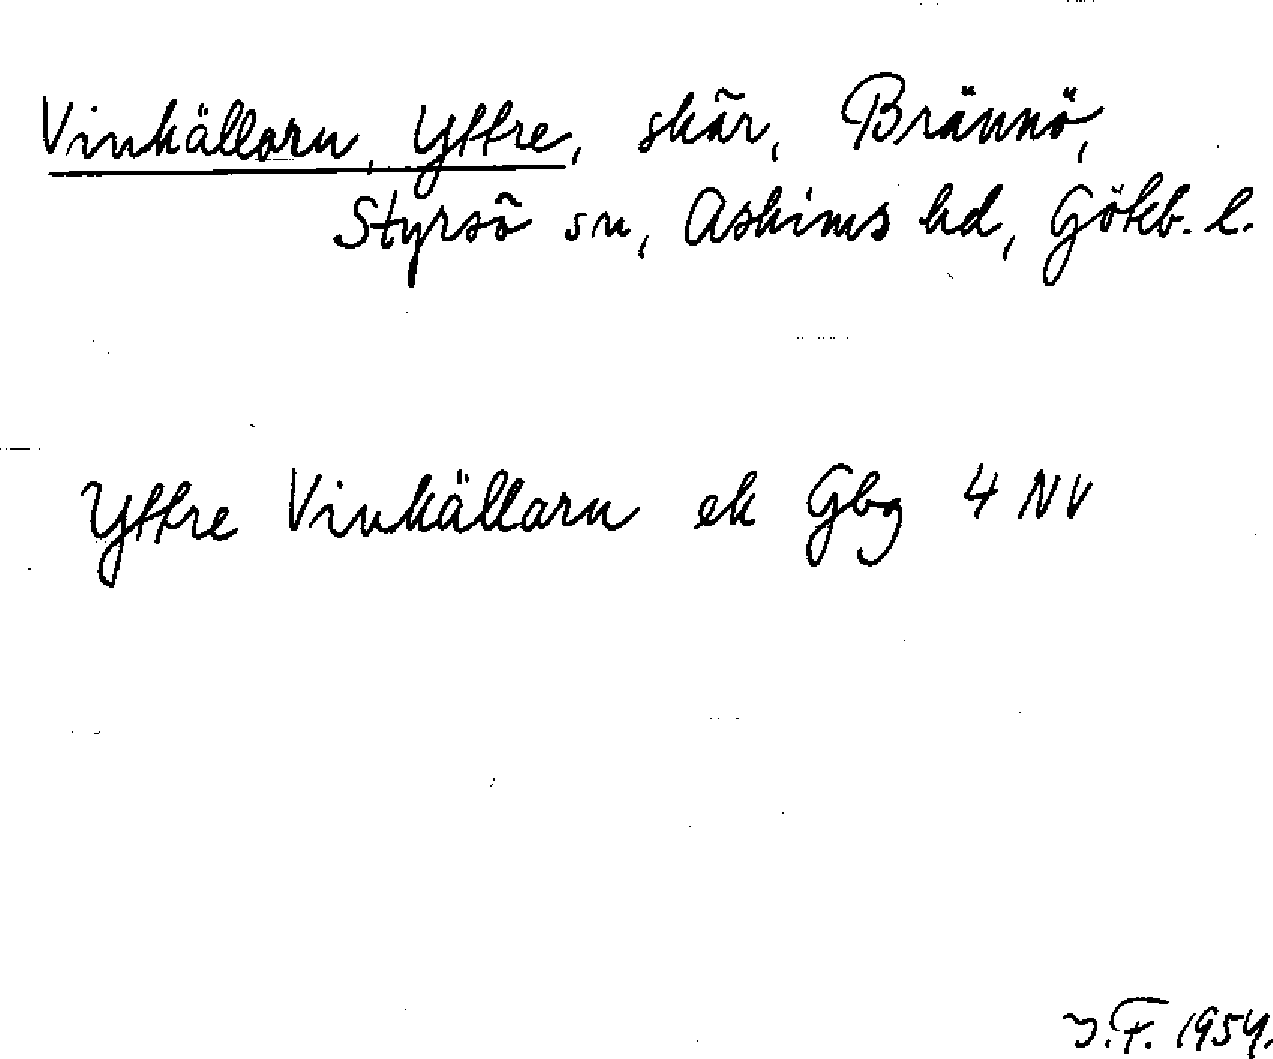 Vinkällarn, Yttre, skär, Brännö,
Styrsö sn, Askims hd, Göteb. l.
Yttre Vinkällarn ek Gbg 4 NV
J.F. 1954.